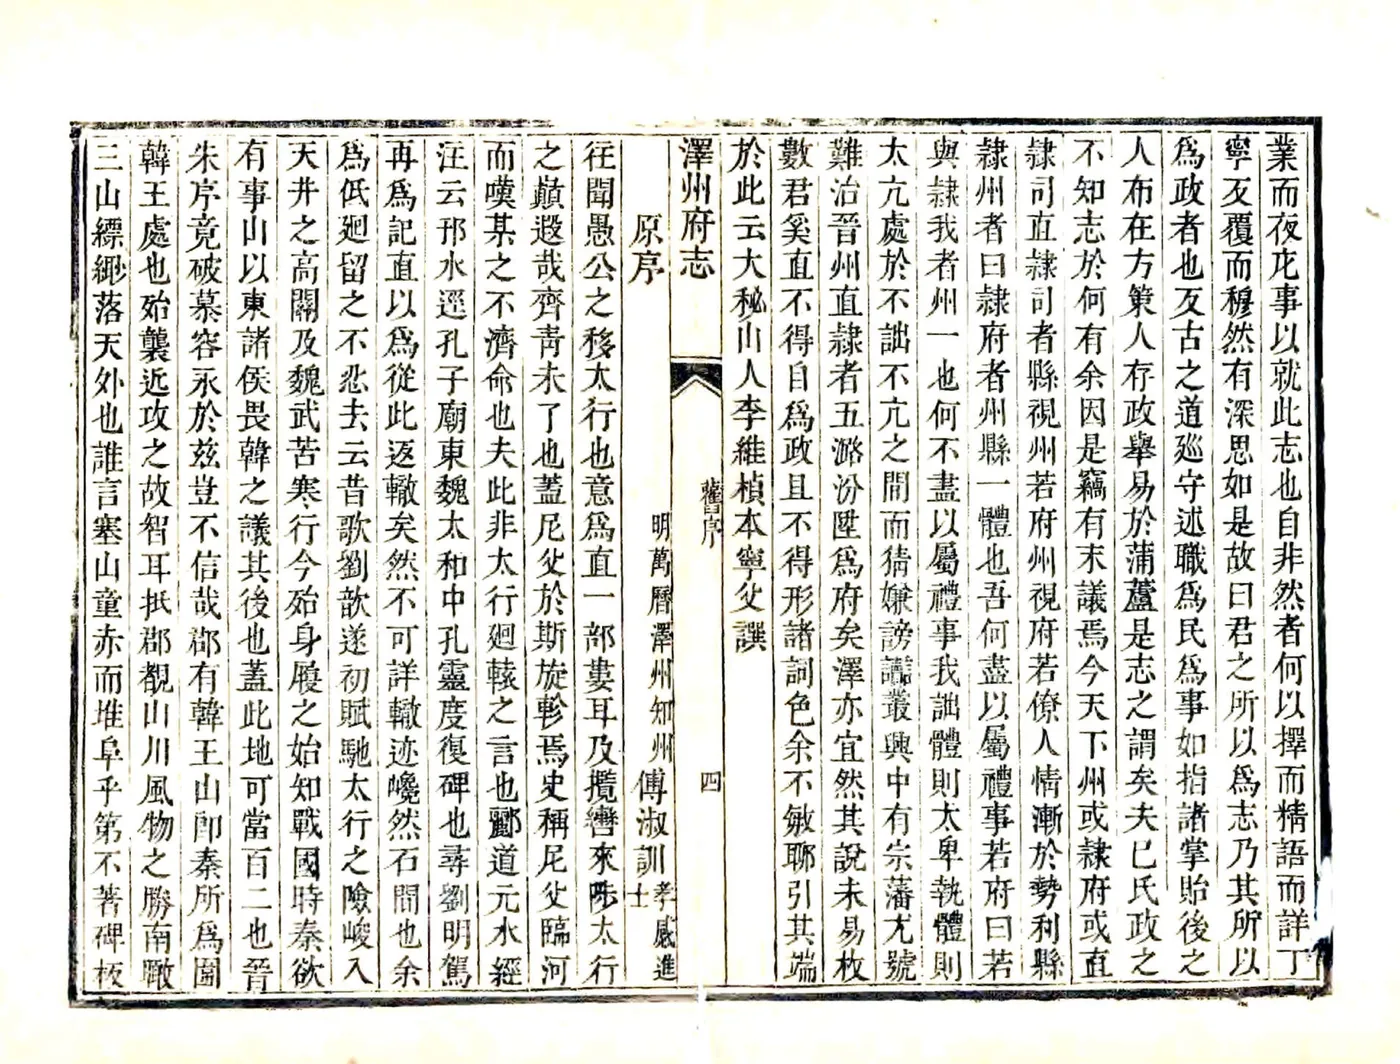 業而夜庀事以就此志也自非然者何以擇而精語而詳丁
寧反覆而穆然有深思如是故曰君之所以爲志乃其所以
爲政者也反古之道巡守述職爲民爲事如指諸掌貽後之
人布在方策人存政舉易於蒲蘆是志之謂矣夫巳氏政之
不知志於何有余因是竊有末議焉今天下州或隸府或直
隸司直隸司者縣視州若府州視府若僚人情漸於勢利縣
隸州者曰隸府者州縣一體也吾何盡以屬禮事若府曰若
與隸我者州一也何不盡以屬禮事我詘體則太卑執體則
太亢處於不詘不亢之間而猜嫌謗讟叢興中有宗藩尤號
難治晉州直隸者五潞汾陞爲府矣澤亦宜然其說未易枚
數君奚直不得自爲政且不得形諸詞色余不敏聊引其端
於此云大秘山人李維楨本寧父譔
澤州府志
舊序
四
原序
明萬曆澤州知州傅淑訓孝感進士
往聞愚公之移太行也意爲直一部婁耳及攬轡來陟太行
之巔遐哉齊青未了也蓋尼父於斯旋軫焉史稱尼父臨河
而嘆某之不濟命也夫此非太行廻轅之言也酈道元水經
注云邘水逕孔子廟東魏太和中孔靈度復碑也尋劉明駕
再爲記直以爲從此返轍矣然不可詳轍迹巉然石間也余
爲低廻留之不忍去云昔歌劉歆遂初賦馳太行之險峻入
天井之高關及魏武苦寒行今殆身履之始知戰國時秦欲
有事山以東諸侯畏韓之議其後也蓋此地可當百二也晉
朱序竟破慕容永於茲豈不信哉郡有韓王山卽秦所爲圍
韓王處也殆襲近攻之故智耳抵郡覩山川風物之勝南瞰
三山縹緲落天外也誰言塞山童赤而堆阜乎第不著碑板